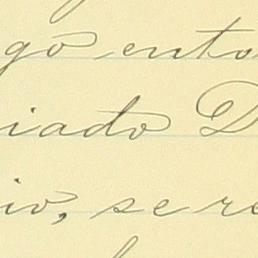 go ento
iado D
io, se re